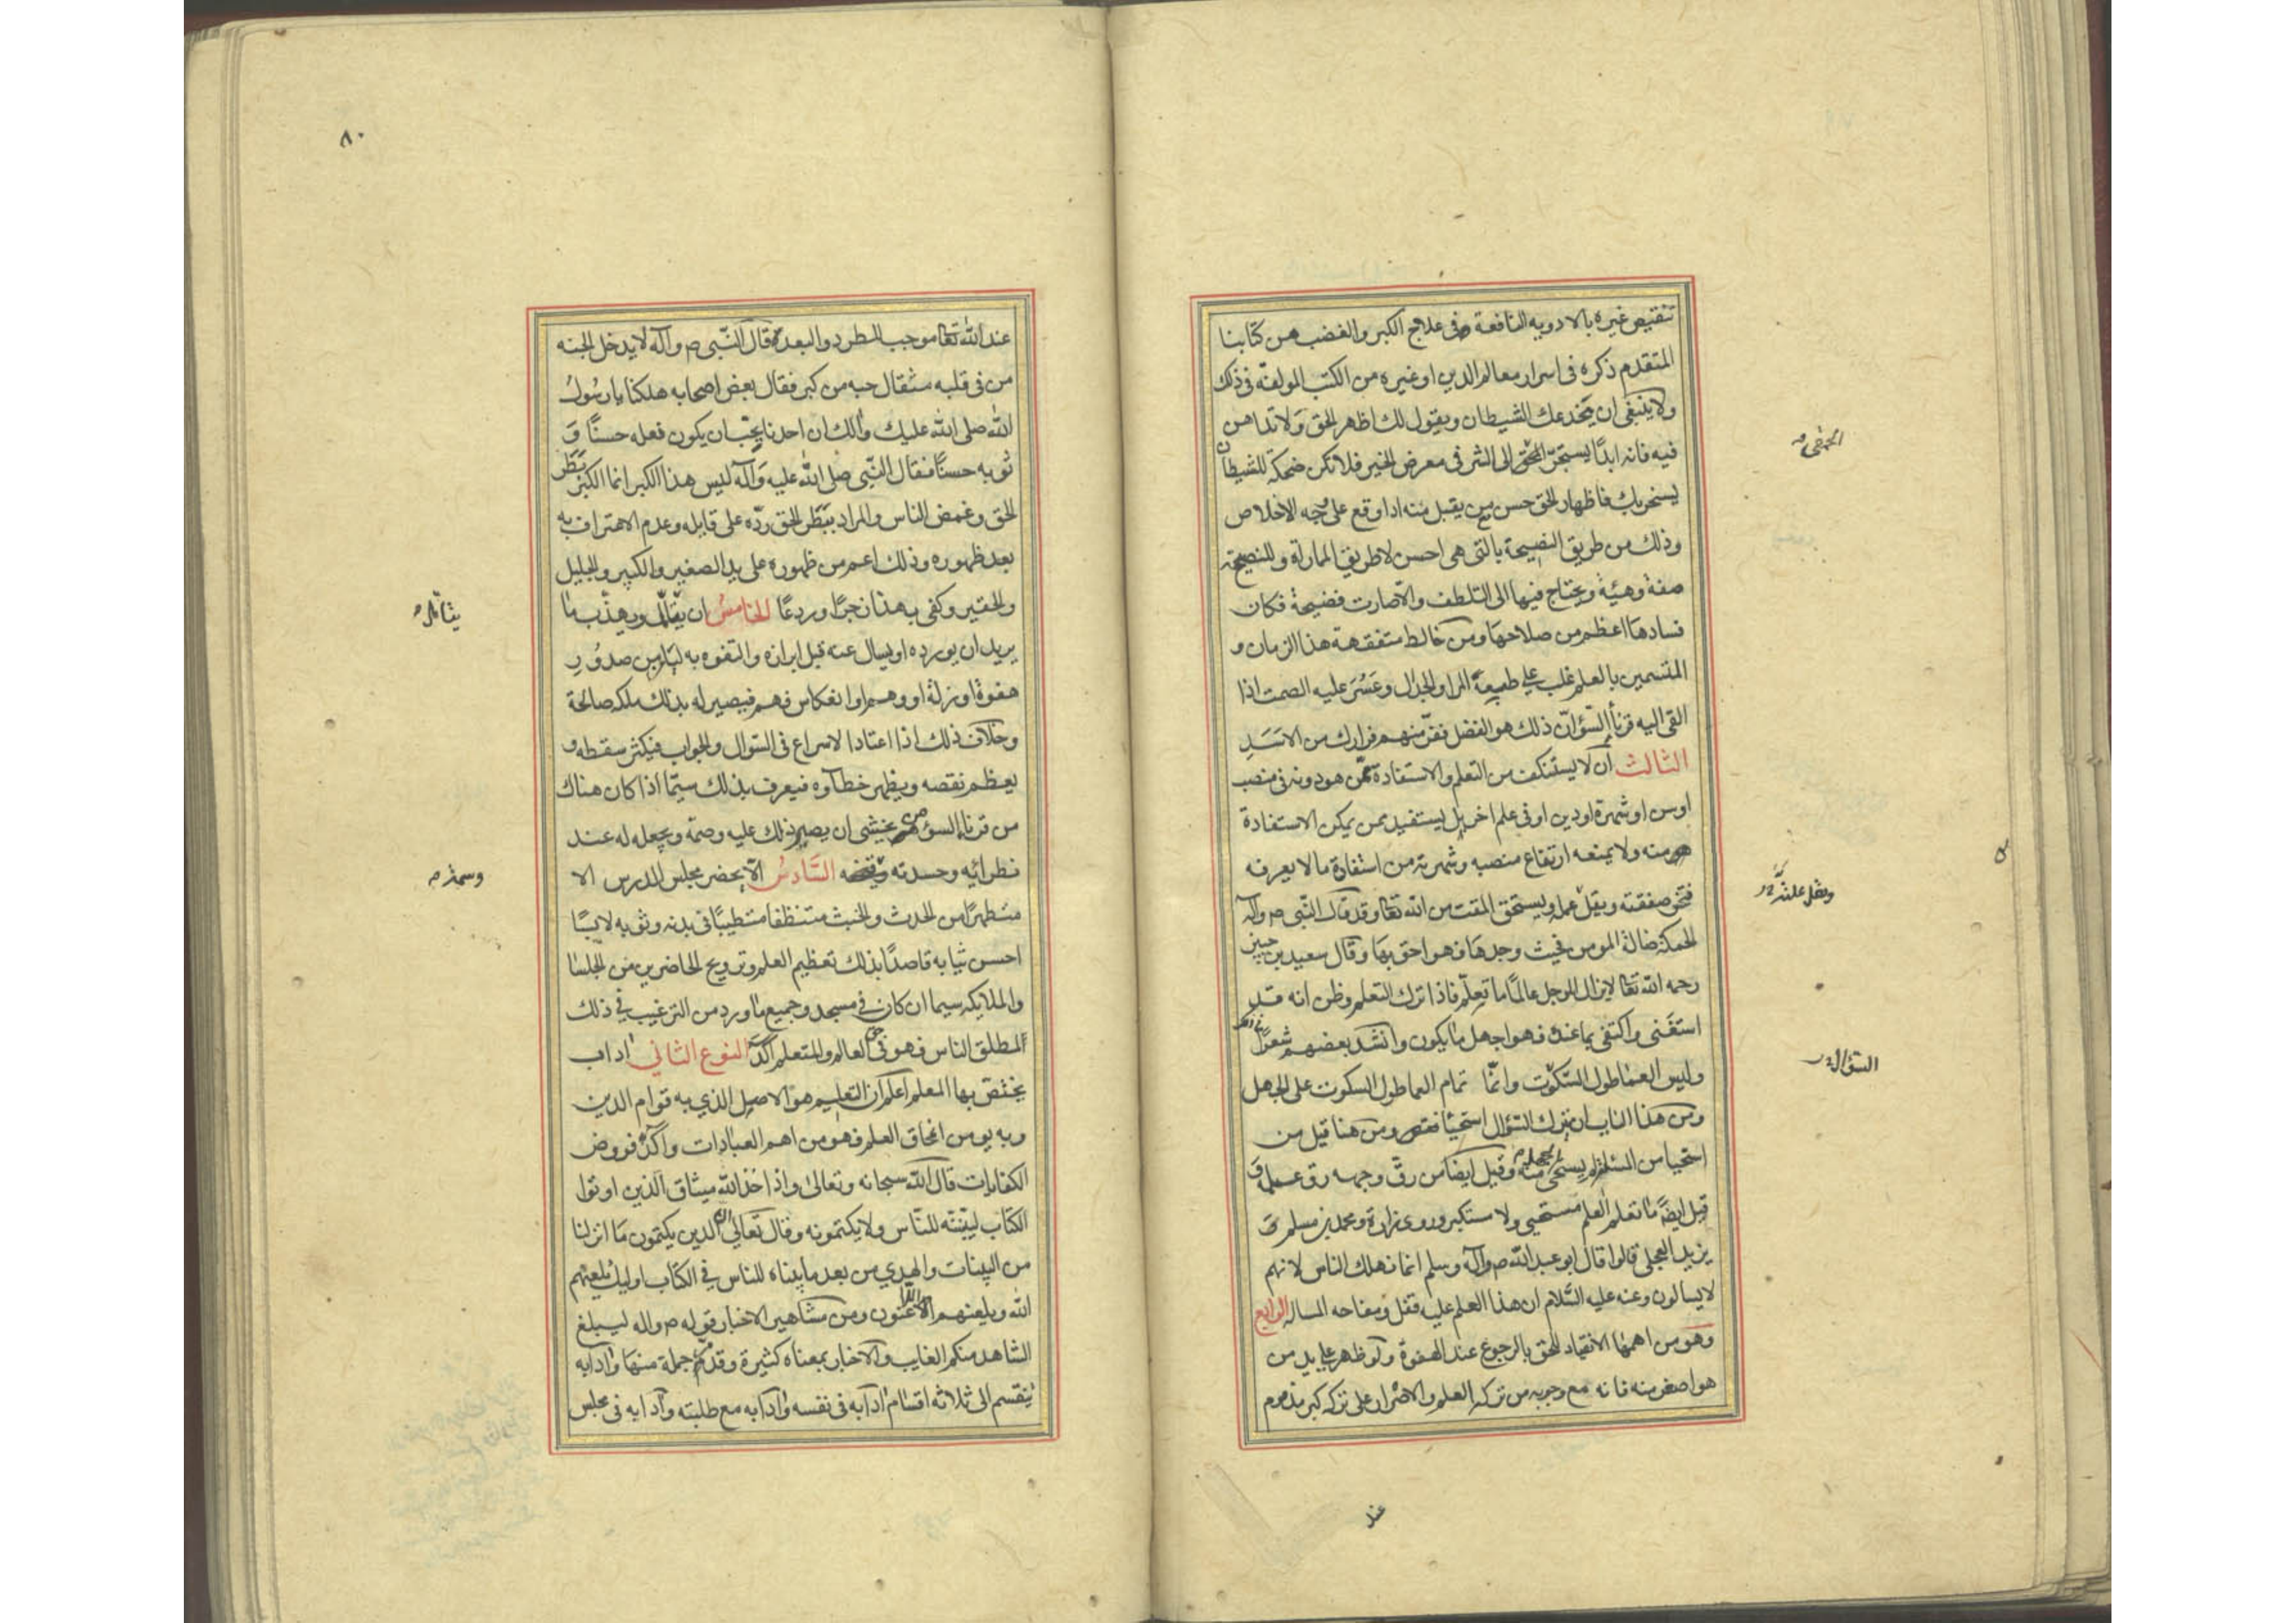 تنقيص غيره بالادويه النافعة في علاج الكبر والغضب من كتابنا
المتقدم ذكره فى اسرار معالم الدين او غيره من الكتب المولفة فى ذلك
ولا ينبغى ان يخدعك الشيطان ويقول لك اظهر الحق ولا تداهن
فيه فانه ابدًا يستجرّ الى الشر فى معرض الخير فلا تكن ضحكة للشيطان
يسخر بك فاظهار الحق حسن مع من يقبل منه اذا وقع على وجه الاخلاص
وذلك من طريق النصيحة بالتى هى احسن لا طريق المماراة وللنصيحة
صفة وهيئة ويحتاج فيها الى التلطف والاصارت فضيحة فكان
فسادها اعظم من صلاحها ومن خالط متفقهة هذا الزمان و
المتسمين بالعلم غلب على طبيعة المرا والجدال وعسر عليه الصمت اذا
القى اليه قرنأ السؤ ان ذلك هو الفضل ففرّ منهم فرارك من الاسد
الثالث ان لا يستنكف من التعلم والاستفادة ممن هو دونه فى منصب
او سن او شهرة او دين او فى علم اخر بل يستفيد ممن يمكن الاستفادة
منه ولا يمنعه ارتفاع منصبه وشهرته من استفادة ما لا يعرفه
فتخسر صفقته ويقل عمله ويستحق المقت من الله تعا وقد قال النبى ص وآله
الحمكة ضالة المومن فحيث وجدها فهو احق بها وقال سعيد بن جبير
رحمه الله تعا لا يزال الرجل عالمًا ما تعلّم فاذا ترك التعلم وظن انه قد
استغنى واكتفى بما عنده فهو اجهل ما يكون وانشد بعضهم شعرًا
وليس العما طول السكوت وانما تمام العما طول السكوت على الجهل
ومن هذا الباب ان يترك السؤال استحيا ومن هنا قيل من
استحيا من وقيل ايضا من رق وجهه رق عمله و
قيل ايضًا ما تعلم العلم مستحيى ولا مستكبر وروى زرارة ومحمد بن مسلم و
يزيد العجلى قالوا قال ابو عبد الله ص وآله وسلم انما نهلك الناس لانهم
لا يسالون وعنه عليه السّلام ان هذا العلم عليه قفل ومفاحه المساله الرابع
وهو من اهمها الانقياد للحق بالرجوع عند الهفوة ولو ظهر على يد من
هو اصغر منه فانه مع وجوبه من تركه العلم والاصرار على تركه كبر مذموم
عند
السؤال
٨٠
عند الله تعا موجب للطرد والبعد قال النّبى ص وآله لا يدخل الجنه
من فى قلبه مثقال حبه من كبر فقال بعض اصحابه هلكنا يا رسول
الله صلى الله عليك والك ان احدنا يحب ان يكون فعله حسنًا و
ثوبه حسنًا فقال النّبى صلى الله عليه وآله ليس هذا الكبر انما الكبر بَطَر
الحق وغمض الناس والمراد ببَطَر الحق ردّه على قايله وعدم الاعتراف به
بعد ظهوره وذلك اعم من ظهوره على يد الصغير والكبير والجليل
والحقير وكفى بهذا زجرًا وردعًا الخامس ان ويهذب ما
يريد ان يورده او يسال عنه قبل ابرازه والتفوه به ليامن من صدور
هفوة او زلة او وهم او انعكاس فهم فيصير له بذلك ملكه صالحة
وخلاف ذلك اذا اعتادا لاسراع فى السّوال والجواب فيكثر سقطه و
يعظم نقصه ويظهر خطآوه فيعرف بذلك سيّما اذا كان هناك
من قرنا السؤ من يخشى ان يصير ذلك عليه وصمة ويجعله له عند
نظرائه وحسدته السّادس الا يحضر مجلس الدرس الا
متطهرًا من الحدث والخبث متنظفا متطيبًا فى بدنه وثوبه لابسًا
احسن ثيابه قاصدًا بذلك تعظيم العلم وترويح الحاضرين من الجلسا
والملايكه سيما ان كان في مسجد وجميع ما ورد من الترغيب في ذلك
لمطلق الناس فهو فى حق العالم والمتعلم اكد النوع الثاني اداب
يختصّ بها المعلم اعلم ان التعليم هو الاصل الذي به قوام الدين
وبه يومن انمحاق العلم فهو من اهم العبادات واكد فروض
الكفايات قال الله سبحانه وتعالى واذ اخذ الله ميثاق الذين اوتوا
الكتاب ليبيّنّه للنّاس ولا يكتمونه وقال تعالي ان الذين يكتمون ما انزلنا
من البينات والهدي من بعد ما بيناه للناس في الكتاب اوليك يلعنهم
الله ويلعنهم اللاعنون ومن مشاهير الاخبار قوله ص واله ليبلغ
الشاهد منكم الغايب والاخبار بمعناه كثيرة وقد مر جملة منها وادابه
ينقسم الى ثلاثه اقسام ادابه فى نفسه وآدابه مع طلبته وآدابه فى مجلس